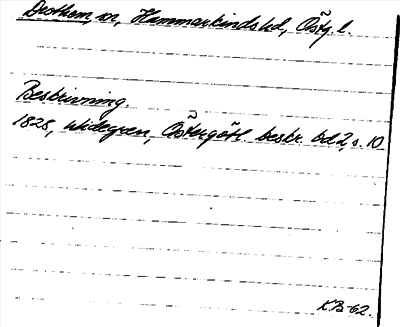 Drothem, sn, Hammarkinds hd, Östg. l.
Beskrivning.
1828, Widegren, Östergötl. beskr. bd 2, s. 10
KB-62.